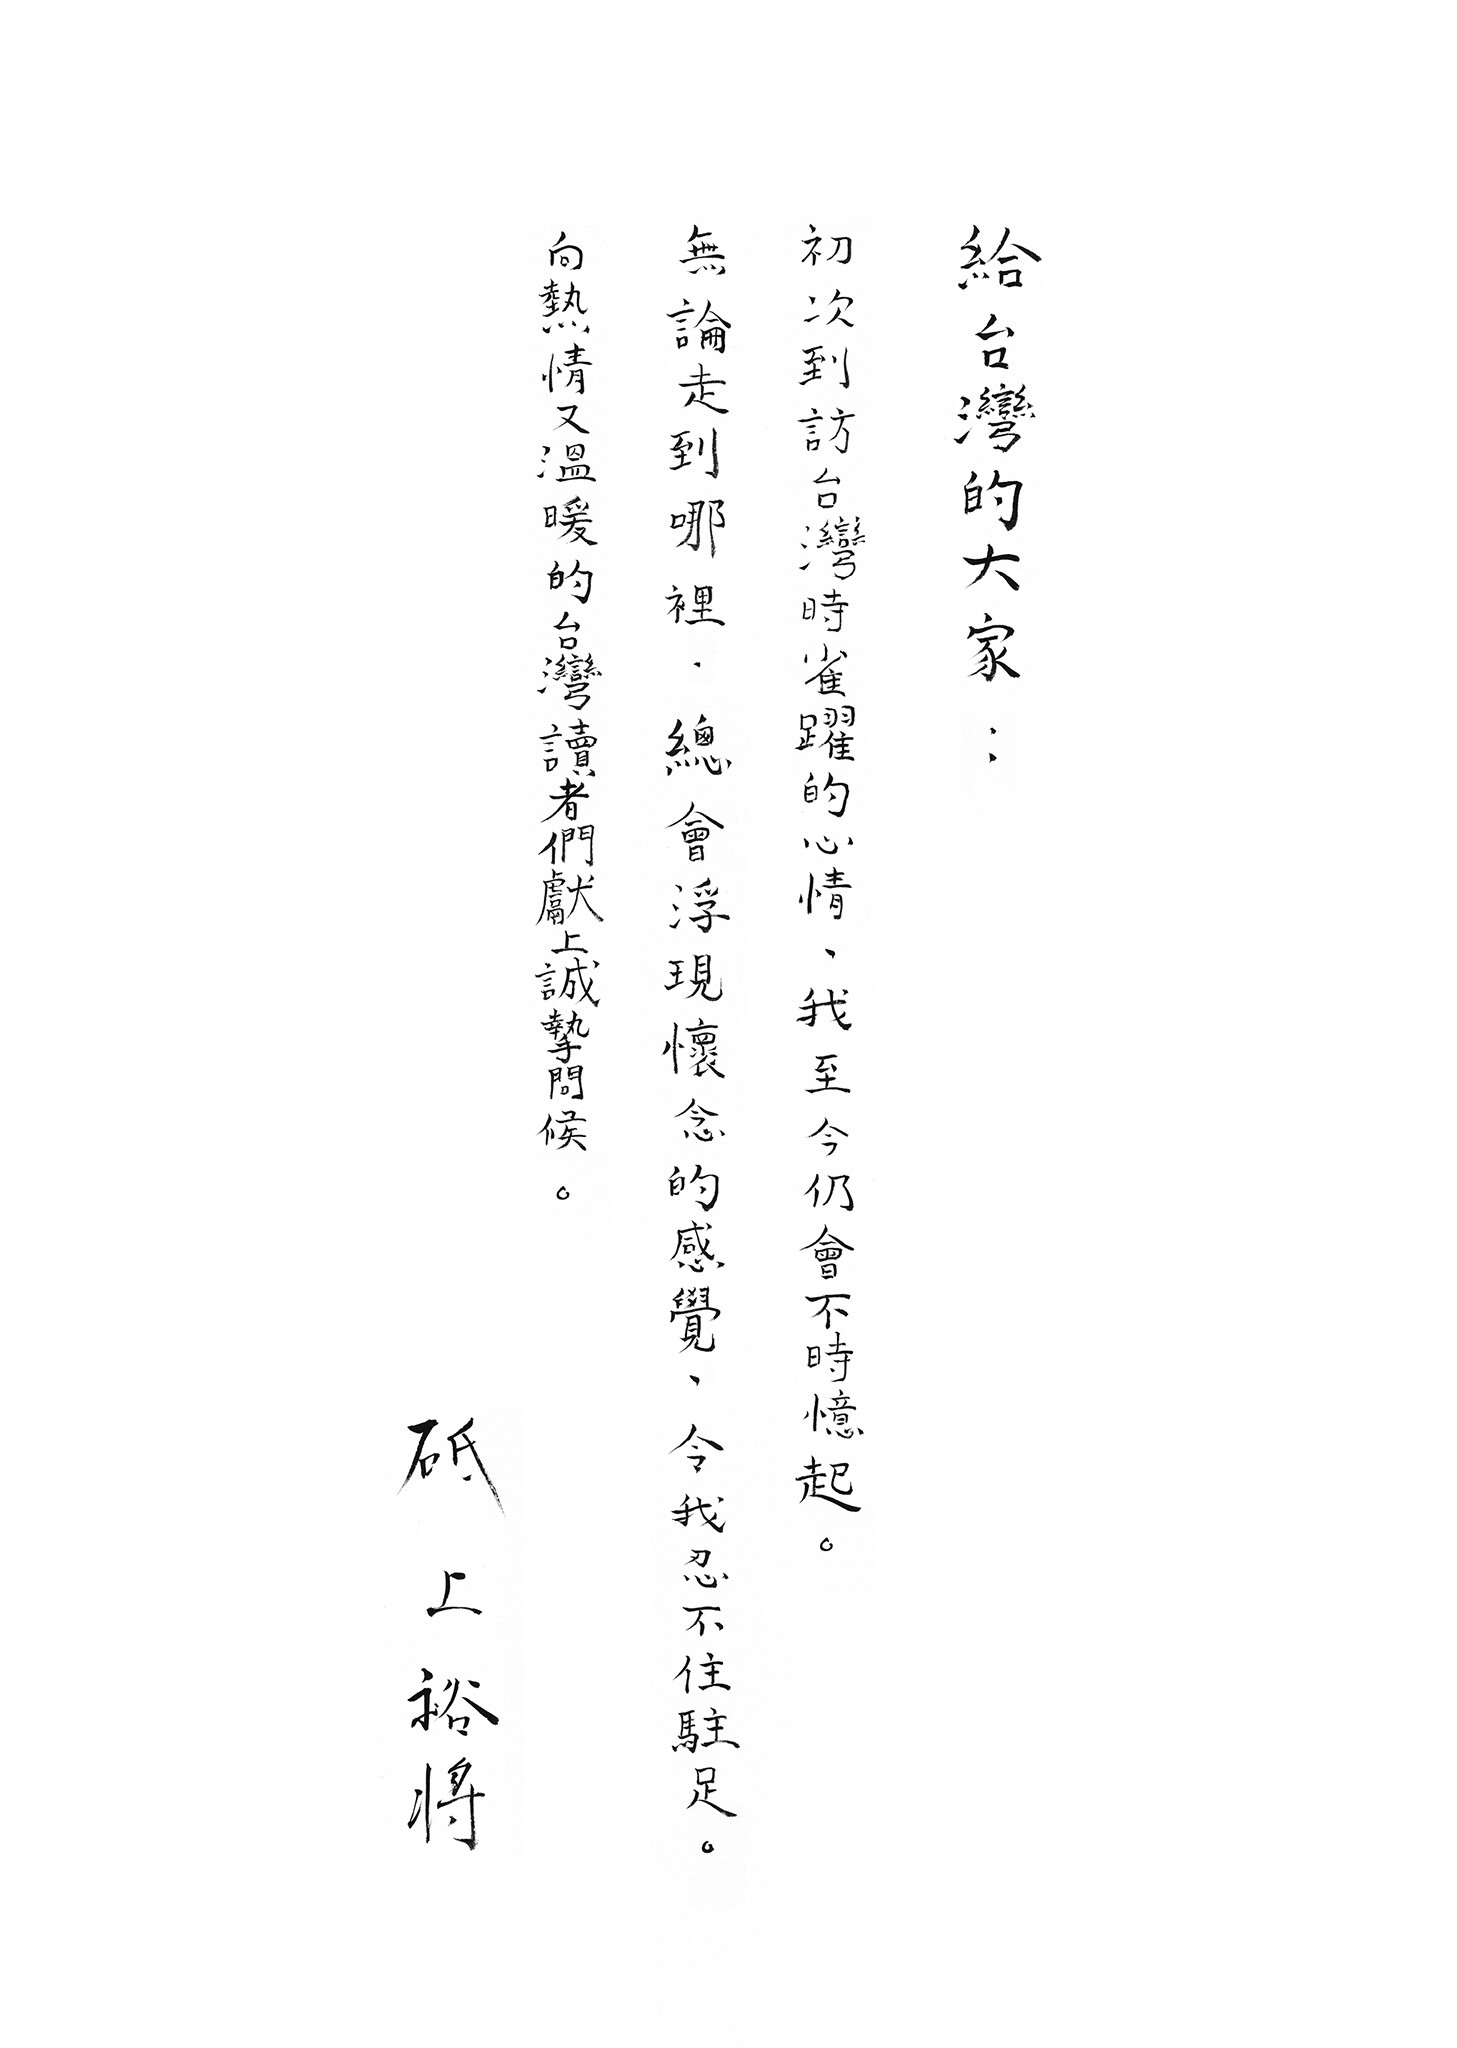 給台灣的大家：
初次到訪台灣時雀躍的心情、我至今仍會不時憶起。
無論走到哪裡．總會浮現懷念的感覺、令我忍不住駐足。
向熱情又溫暖的台灣讀者們獻上誠摯問候。
砥上裕將